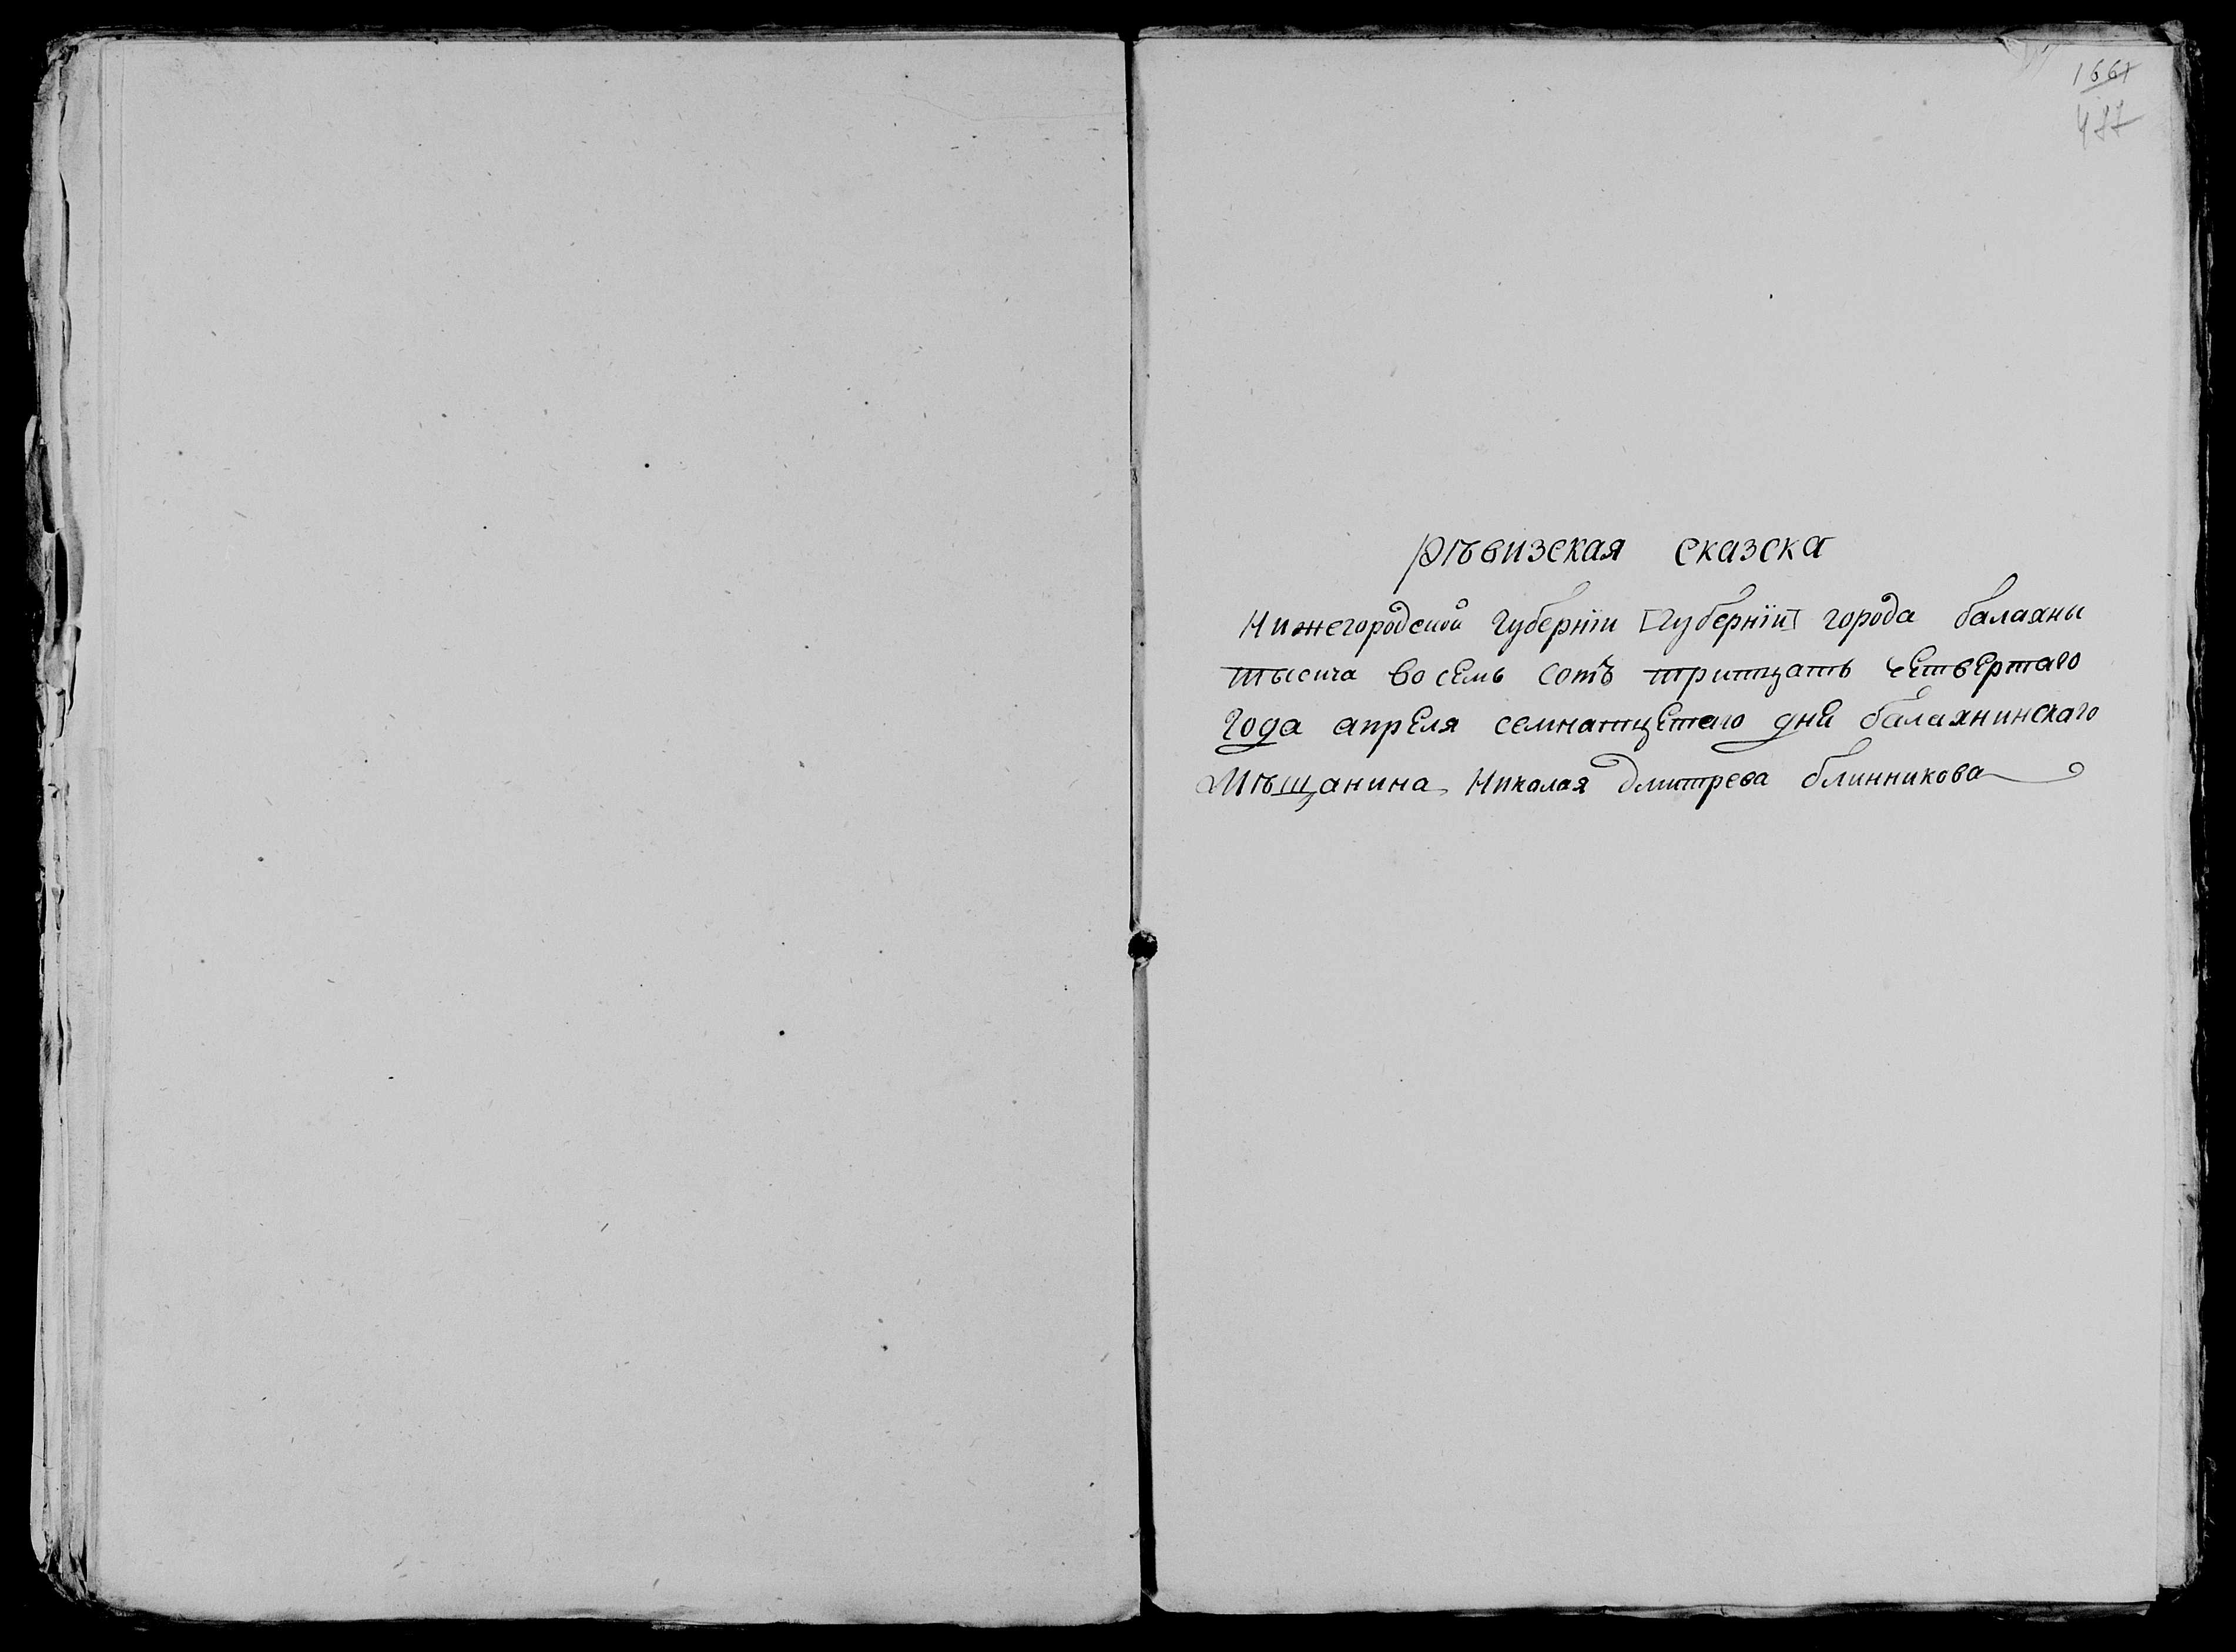 1661
477
рѣвизская сказска
Нижегородской губернїи [губернїи] города балахны
тысича восемь сотъ тритцать четвертаго
года апреля семнатцетаго дня балахнинскаго
Мѣщанина Николая дмитрева блинникова